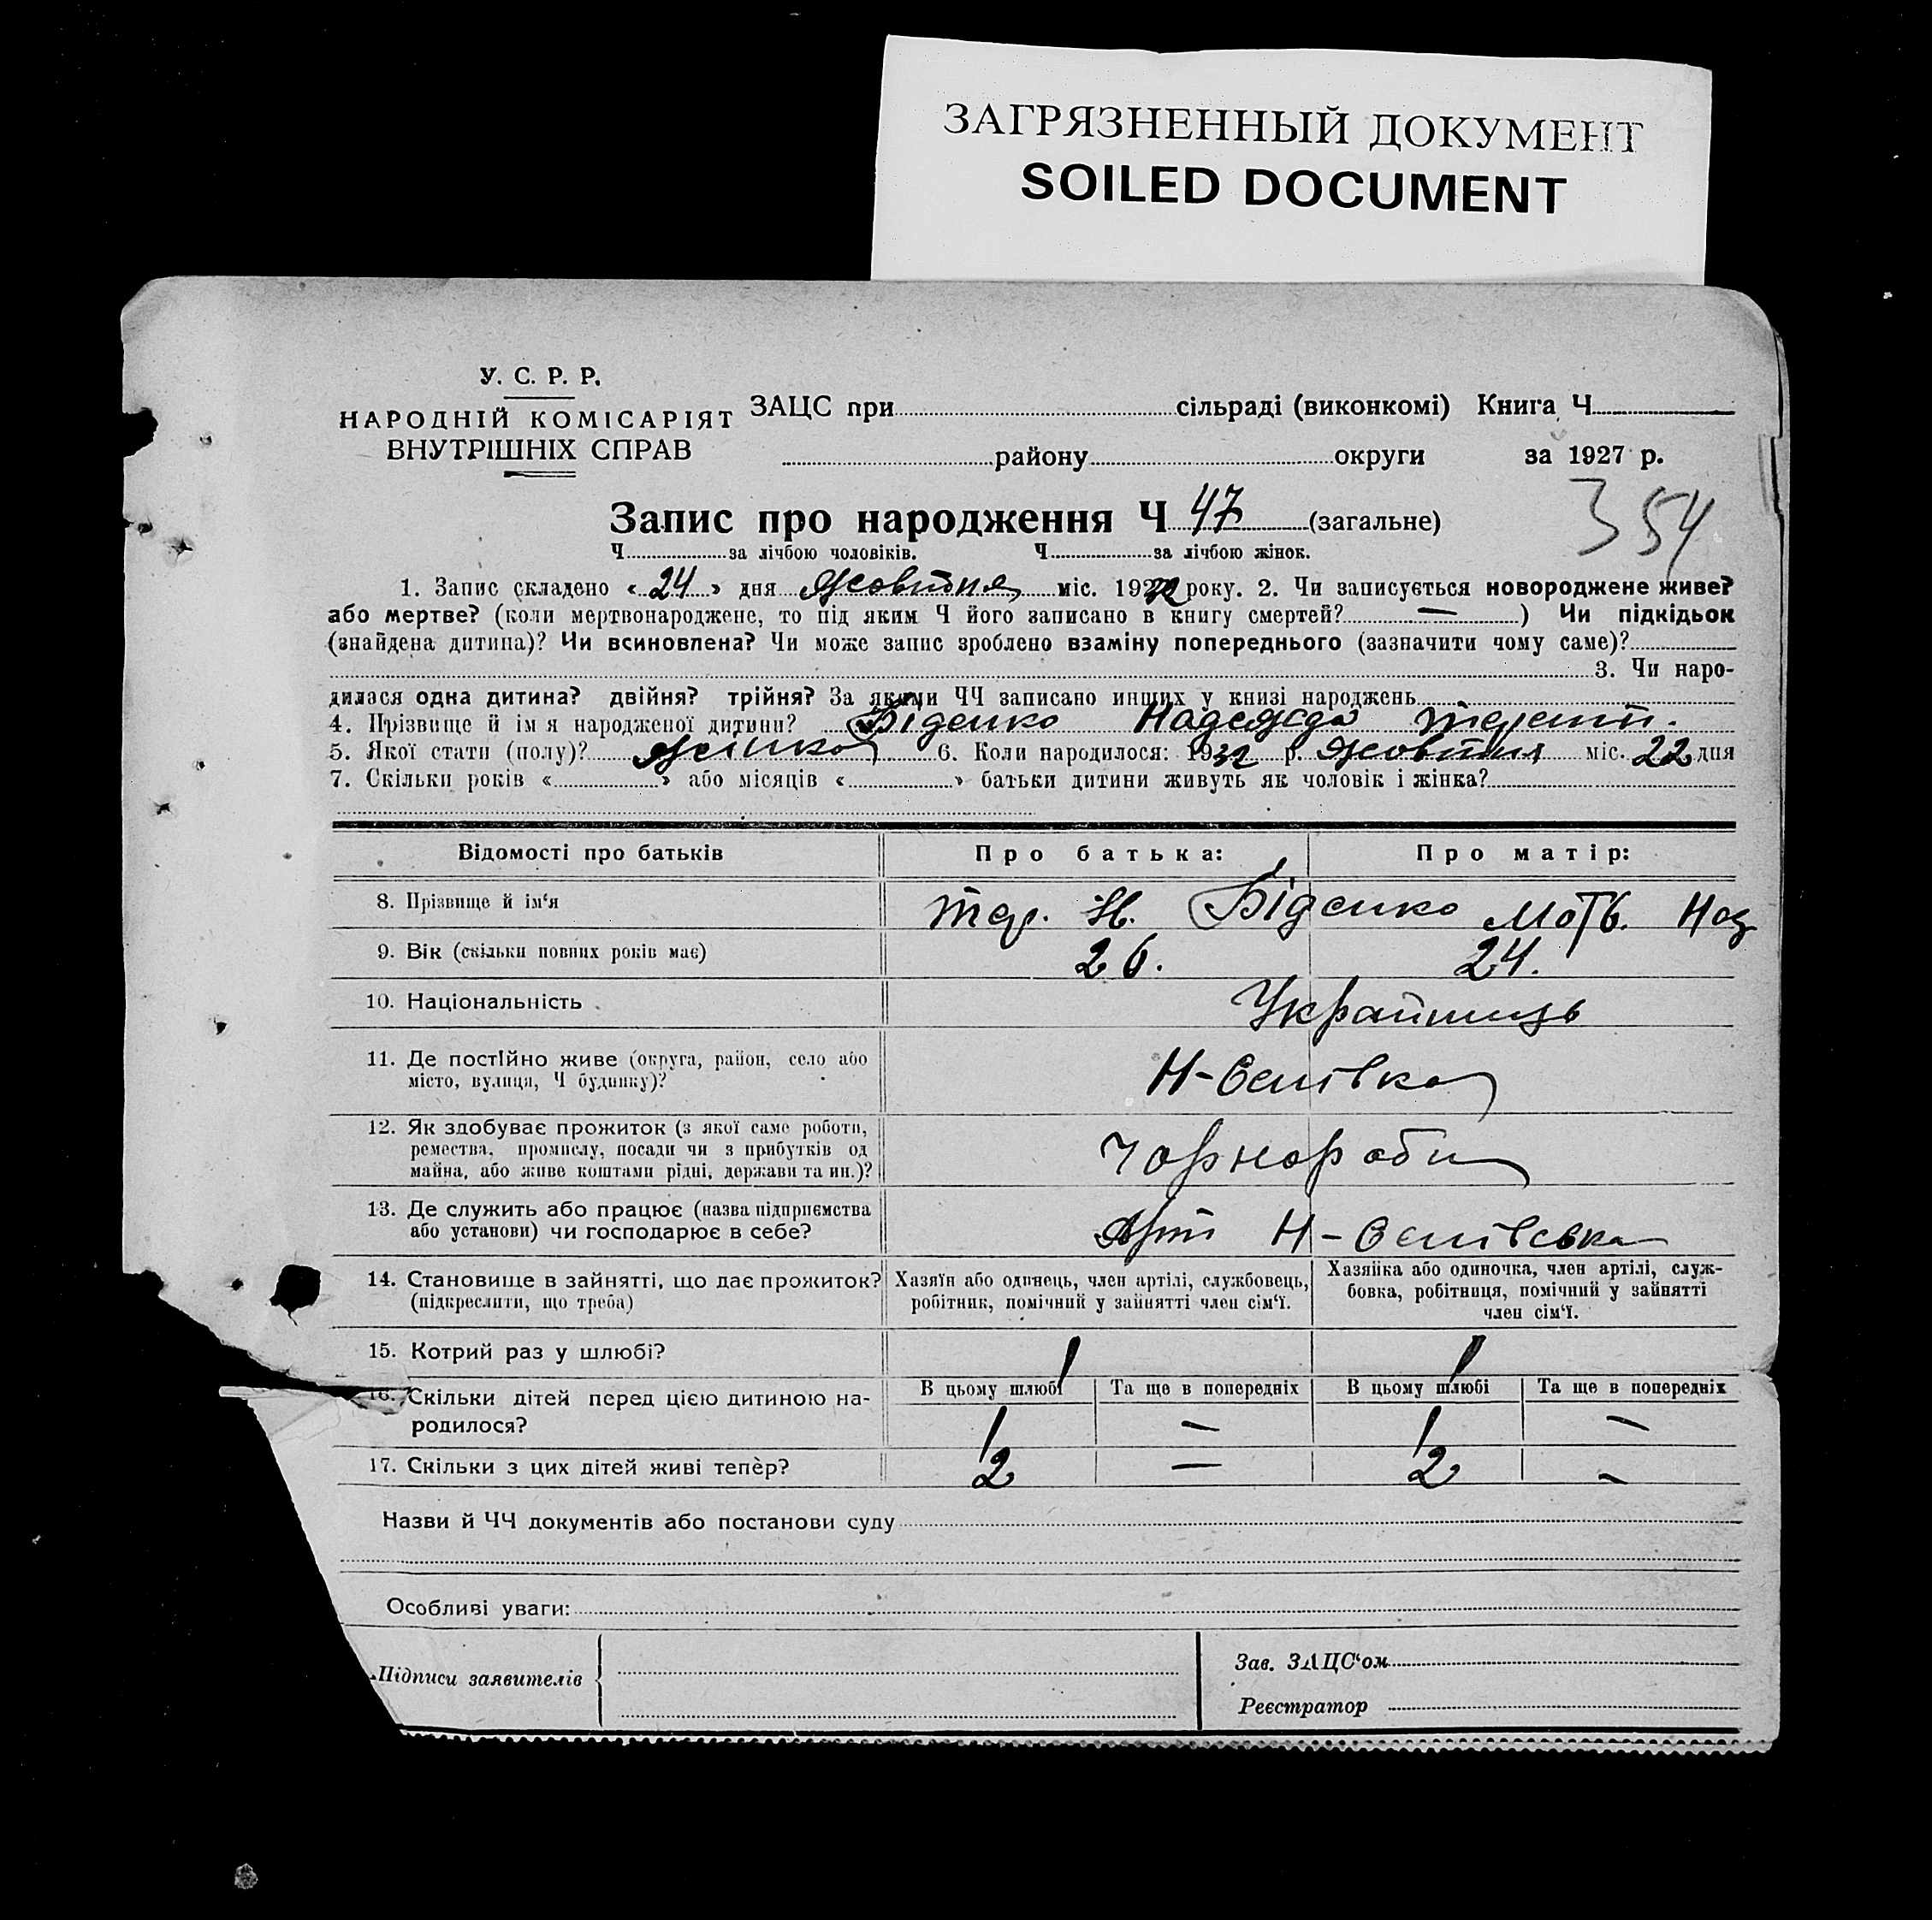 ЗАГРЯЗНЕННЫЙ ДОКУМЕНТ
SOILED DOCUMENT
У. С. Р. Р.
НАРОДНІЙ КОМІСАРІЯТ
ВНУТРІШНІХ СПРАВ
ЗАЦС при сільраді (виконкомі) Книга Ч
району округи за 1927 р.
354
Запис про народження Ч 47 (загальне)
Ч за лічбою чоловіків. Ч за лічбою жінок.
1. Запис складено « 24 » дня Жовтня міс. 1932 року. 2. Чи записується новороджене живе?
або мертве? (коли мертвонароджене, то під яким Ч його записано в книгу смертей? — ) Чи підкідьок
(знайдена дитина)? Чи всиновлена? Чи може запис зроблено взаміну попереднього (зазначити чому саме)?
3. Чи наро-
дилася одна дитина? двійня? трійня? За якими ЧЧ записано инших у книзі народжень
4. Прізвище й ім я народженої дитини? Біденко Надежда Терент.
5. Якої стати (полу)? жінка 6. Коли народилося: 1932 р. Жовтня міс. 22 дня
7. Скільки років « » або місяців « » батьки дитини живуть як чоловік і жінка?
Відомості про батьків Про батька: Про матір:
8. Прізвище й ім‘я Тер. Н. Біденко Мотв.
9. Вік (скільки повних років має) 26. 24.
10. Національність Українець
11. Де постійно живе (округа, район, село або
місто, вулиця, Ч будинку)?
12. Як здобуває прожиток (з якої саме роботи,
ремества, промислу, посади чи з прибутків од
майна, або живе коштами рідні, держави та ин.)?
Чорнороби
13. Де служить або працює (назва підприємства
або установи) чи господарює в себе?
Арт
14. Становище в зайнятті, що дає прожиток?
(підкреслити, що треба)
Хазяїн або одинець, член артілі, службовець,
робітник, помічний у зайнятті член сім‘ї.
Хазяйка або одиночка, член артілі, служ-
бовка, робітниця, помічний у зайнятті
член сім‘ї.
15. Котрий раз у шлюбі? 1 1
В цьому шлюбі Та ще в попередніх В цьому шлюбі Та ще в попередніх
16. Скільки дітей перед цією дитиною на-
родилося? 1 — 1 —
17. Скільки з цих дітей живі тепèр? 2 — 2 —
Назви й ЧЧ документів або постанови суду
Особливі уваги:
Підписи заявителів
Зав. ЗАЦС‘ом
Реєстратор